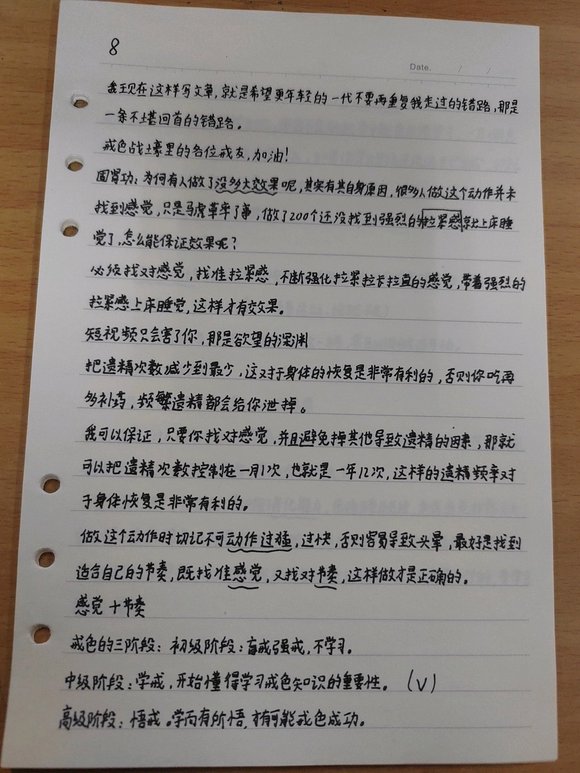 8
Date. / /
我现在这样写文章，就是希望更年轻的一代不要再重复我走过的错路，那是
一条不堪回首的错路。
戒色战士寨里的各位戒友，加油！
固肾功：为何有人做了没多大效果呢，其实有其自身原因，很多人做这个动作并未
找到感觉，只是马虎草率了事，做了200个还没找到强烈的拉紧感就上床睡
觉了，怎么能保证效果呢？
必须找对感觉，找准拉紧感，不断强化拉紧拉长拉直的感觉，带着强烈的
拉紧感上床睡觉，这样才有效果。
短视频只会害了你，那是欲望的深渊
把遗精次数减少到最少，这对于身体的恢复是非常有利的，否则你吃再
多补药，频繁遗精都会给你泄掉。
我可以保证，只要你找对感觉，并且避免掉其他导致遗精的因素，那就
可以把遗精次数控制在一月1次，也就是一年12次，这样的遗精频率对
于身体恢复是非常有利的。
做这个动作时切记不可动作过猛，过快，否则容易导致头晕，最好是找到
适合自己的节奏，既找准感觉，又找对节奏，这样做才是正确的。
感觉＋节奏
戒色的三阶段：初级阶段：盲戒强戒，不学习。
中级阶段：学戒，开始懂得学习戒色知识的重要性。（√）
高级阶段：悟戒。学而有所悟，才有可能戒色成功。